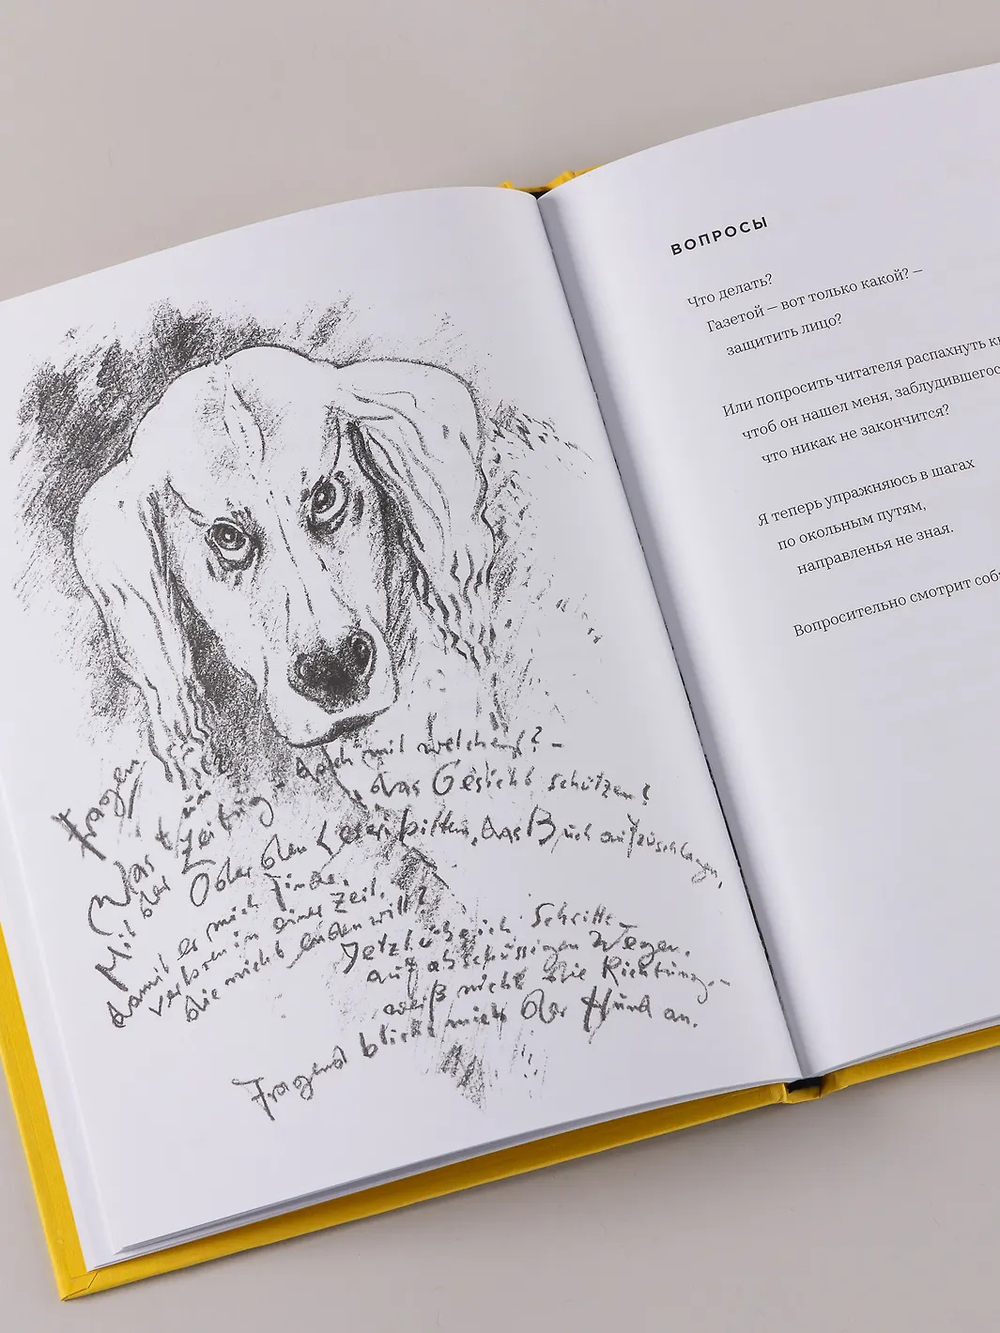 Fragen
Was tun?
Mit der Zeitung, doch mit welcher? –
das Gesicht schützen?
Oder den Leser bitten, das Buch aufzuschlagen,
damit er mich finde,
verloren in einer Zeit,
die nicht enden will?
Jetzt ich Schritte
auf abschüssigen Wegen,
weiß nicht die Richtung.
Fragend blickt mich der Hund an.
ВОПРОСЫ
Что делать?
Газетой – вот только какой? –
защитить лицо?
Или попросить читателя распахнуть
чтоб он нашел меня, заблудившегос
что никак не закончится?
Я теперь упражняюсь в шагах
по окольным путям,
направленья не зная.
Вопросительно смотрит соб